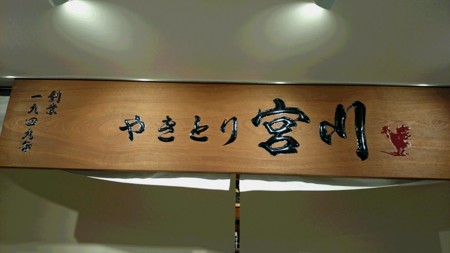 やきとり宮川
創業
一九四九年